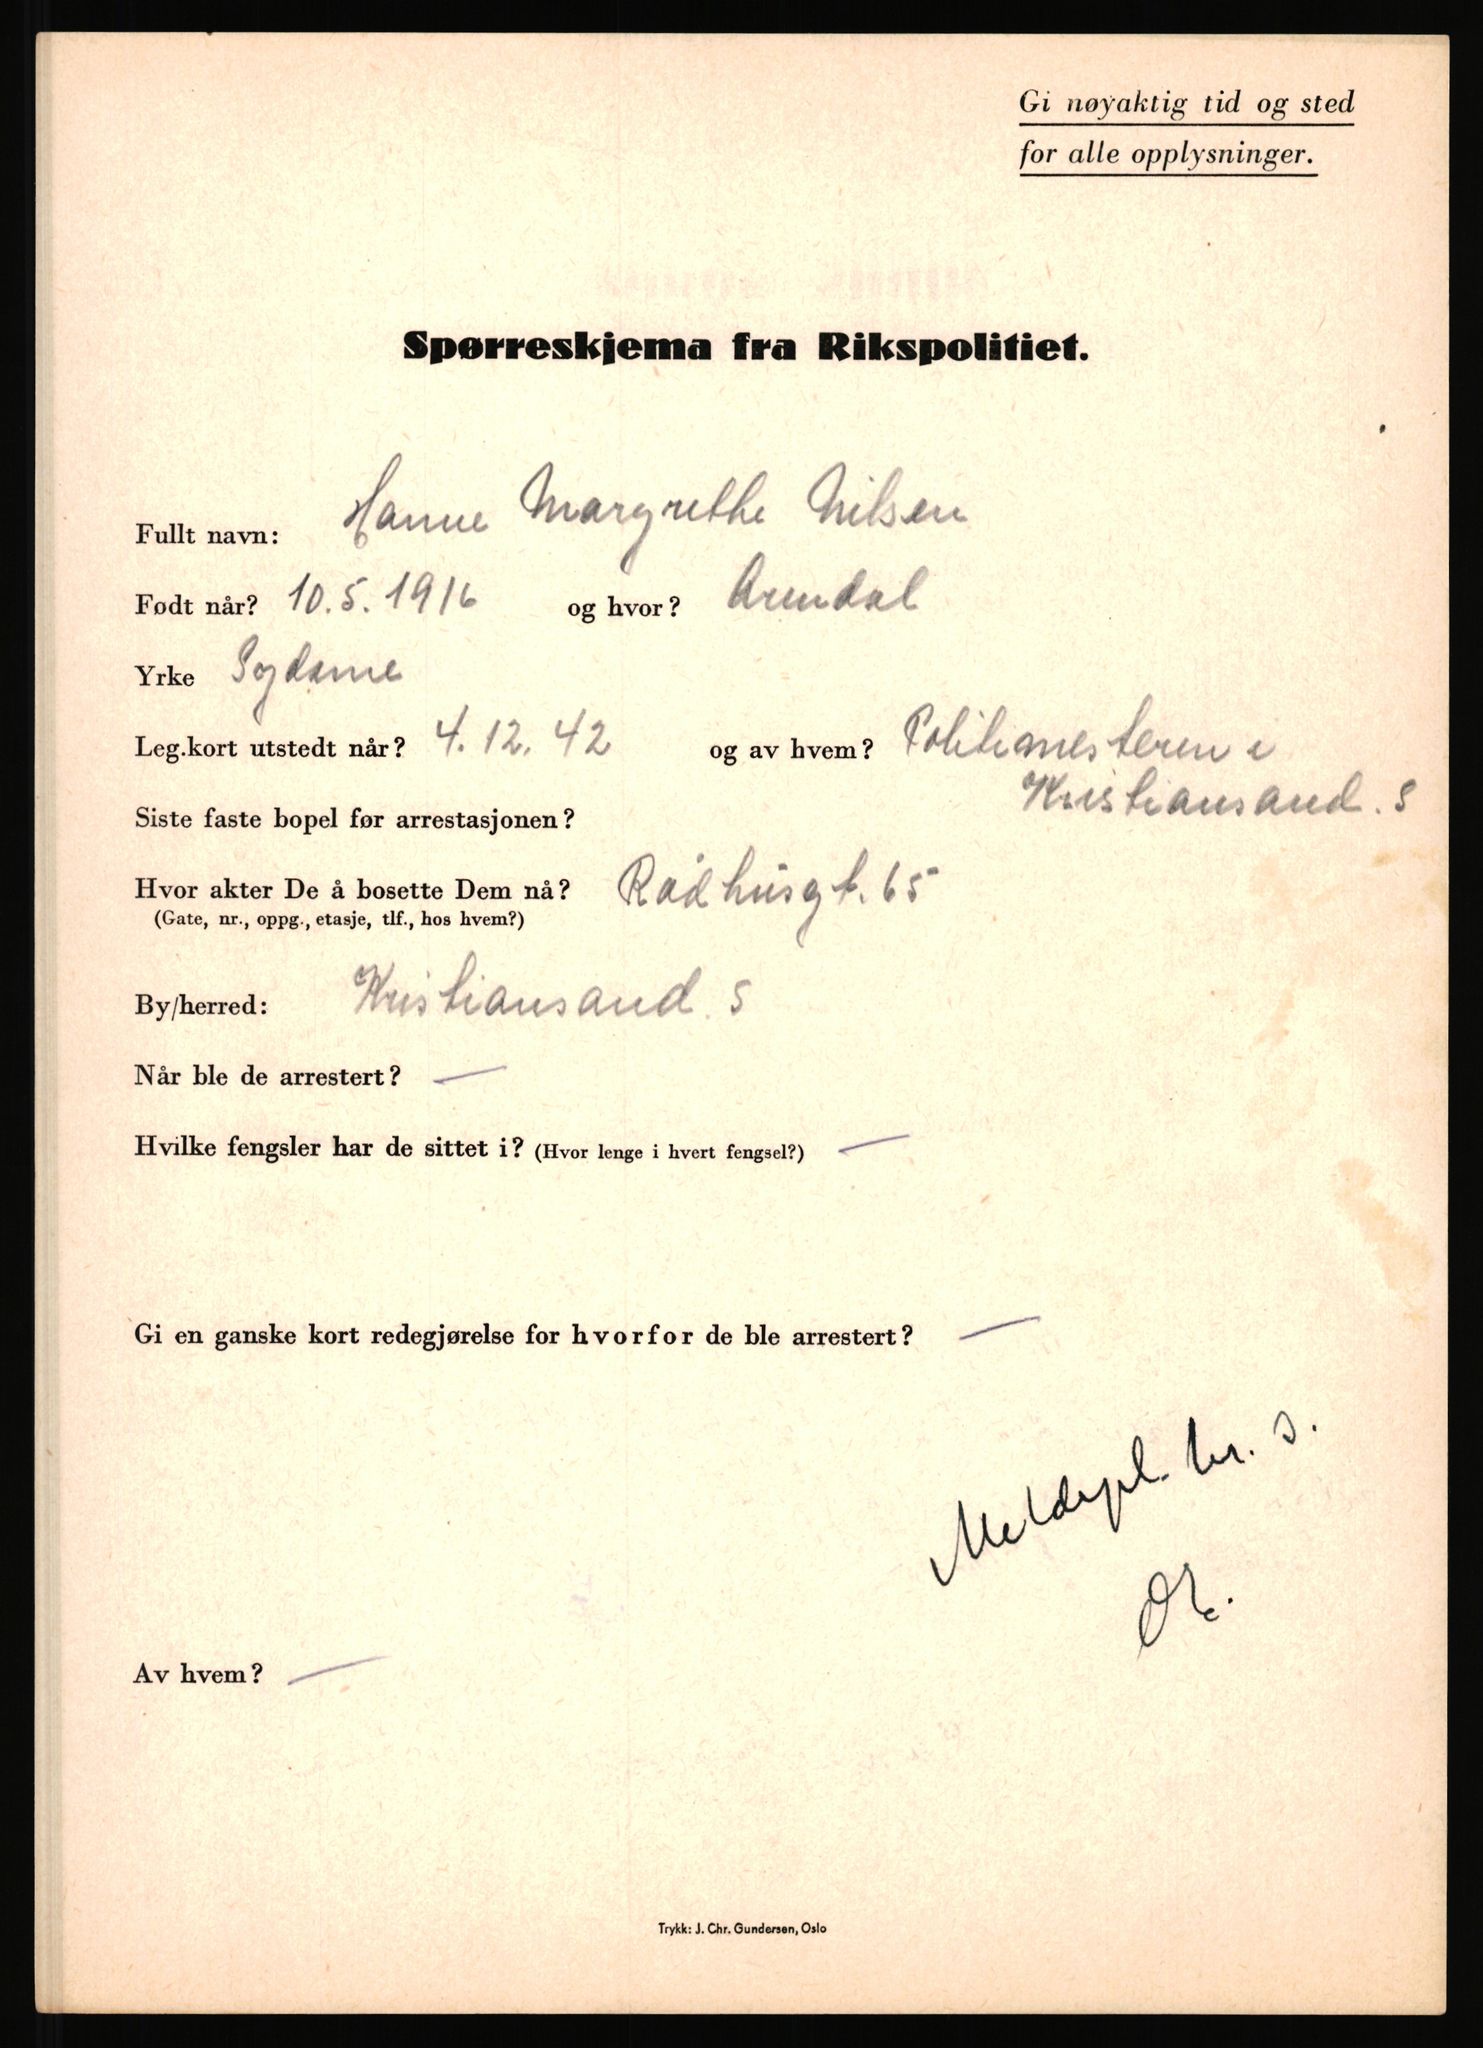 Gi nøyaktig tid og sted
for alle opplysninger.
Spørreskjema fra Rikspolitiet.
Fullt navn: Hanne Margrethe Nilsen
Født når? 10.5.1916 og hvor? Arendal
Yrke Sydame
Leg.kort utstedt når? 4.12.42 og av hvem? Politimesteren i
Kristiansand. S
Siste faste bopel før arrestasjonen?
Hvor akter De å bosette Dem nå? Rådhusgt. 65
(Gate, nr., oppg., etasje, tlf., hos hvem?)
By/herred: Kristiansand. S
Når ble de arrestert? —
Hvilke fengsler har de sittet i? (Hvor lenge i hvert fengsel?) —
Gi en ganske kort redegjørelse for hvorfor de ble arrestert? —
Meldepl. kr. s.
Av hvem? —
Trykk: J. Chr. Gundersen, Oslo